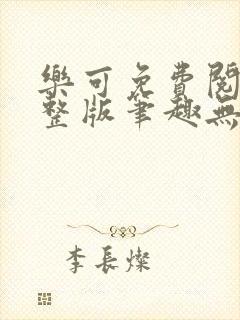 樂可免費閱
整版筆趣無
李長燦